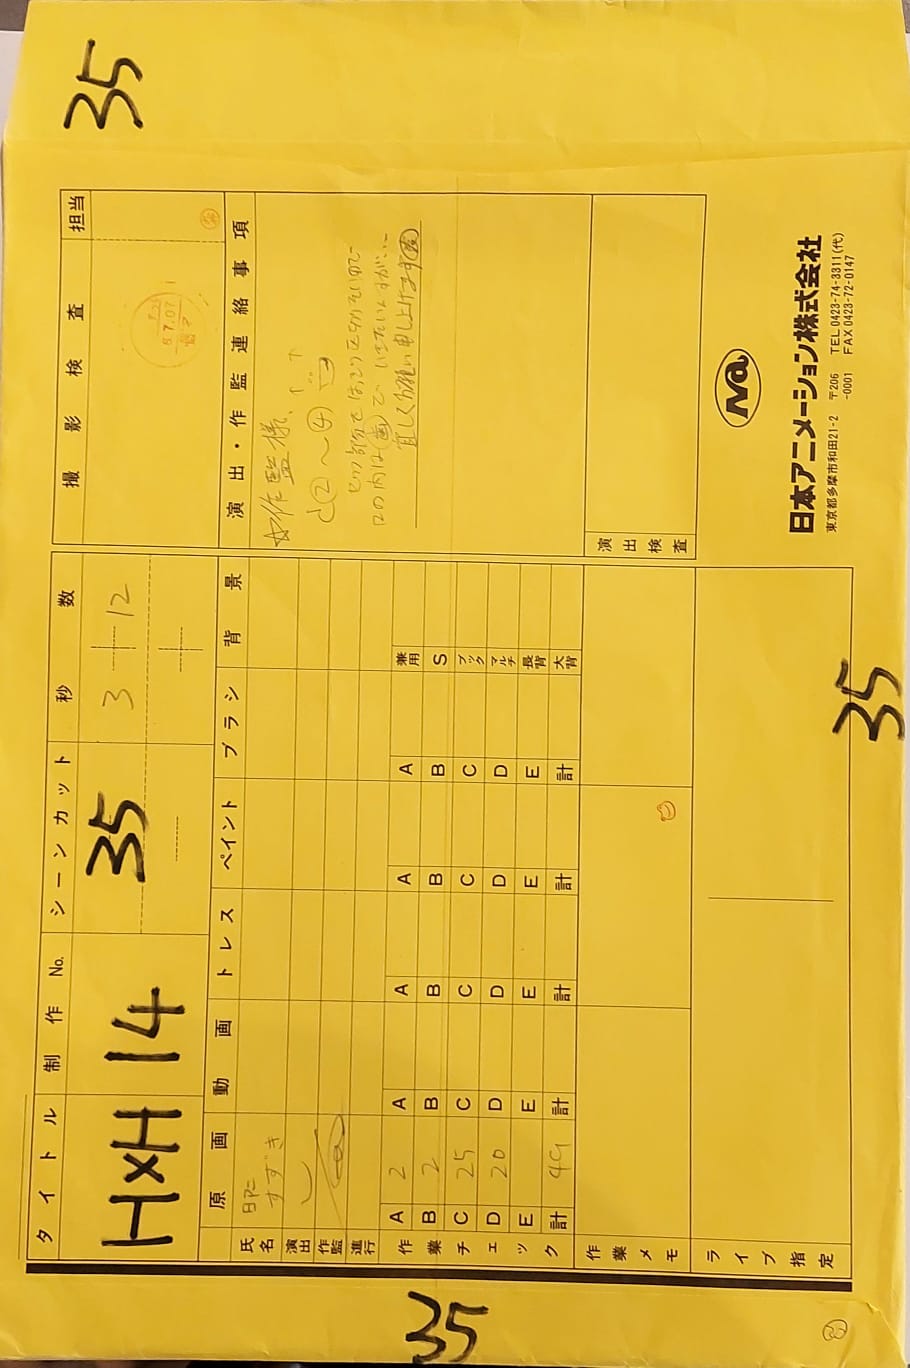 35
タイトル
制作 No.
シーンカット
秒数
HxH
14
35
3+12
撮影検査
担当
原画
動画
トレス
ペイント
ブラシ
背景
氏名
すずき
演出
作監
進行
作業チェック
A 2 A A A A 兼用
B 2 B B B B S
C 25 C C C C ブック
D 20 D D D D マルチ
E E E E E 長背
計 49 計 計 計 計 大背
作業メモ
ライブ指定
演出・作監連絡事項
☆作監様、
②〜④
口の内は歯で
宜しくお願い申し上げます
演出検査
Na
日本アニメーション株式会社
東京都多摩市和田21-2 〒206-0001
TEL 0423-74-3311(代)
FAX 0423-72-0147
35
35